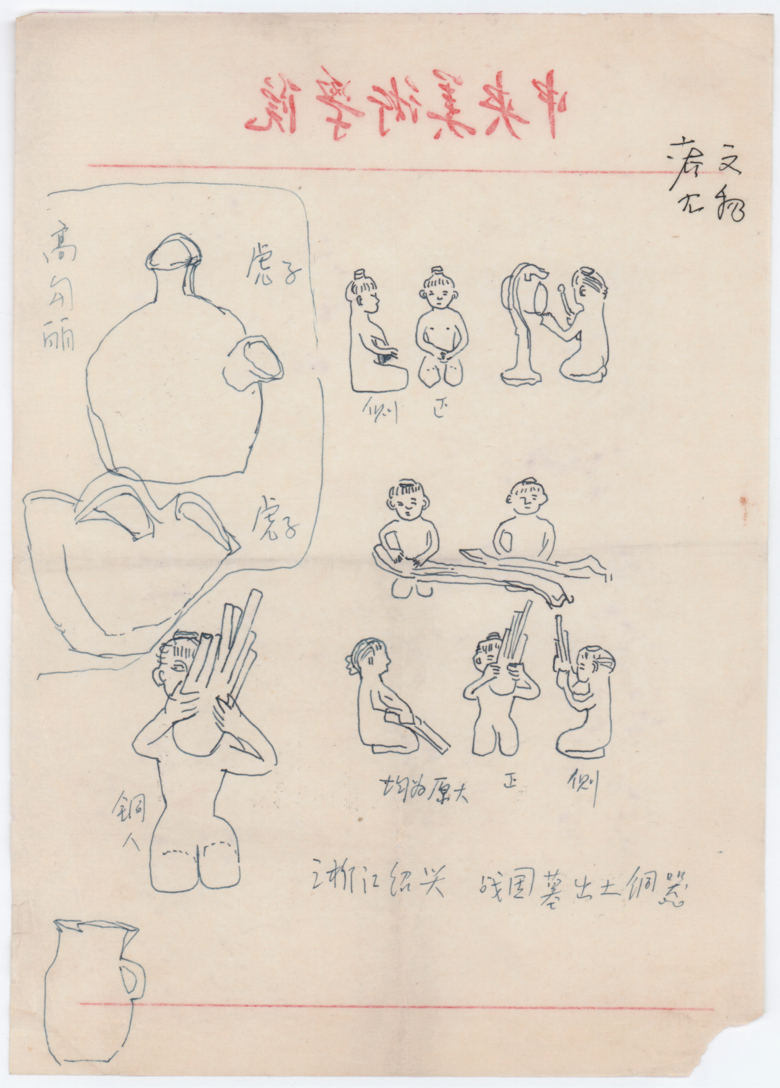 中央美術學院
文物
高句丽
虎子
側 正
虎子
均为原大 正 側
銅人
浙江绍兴 战国墓出土铜器